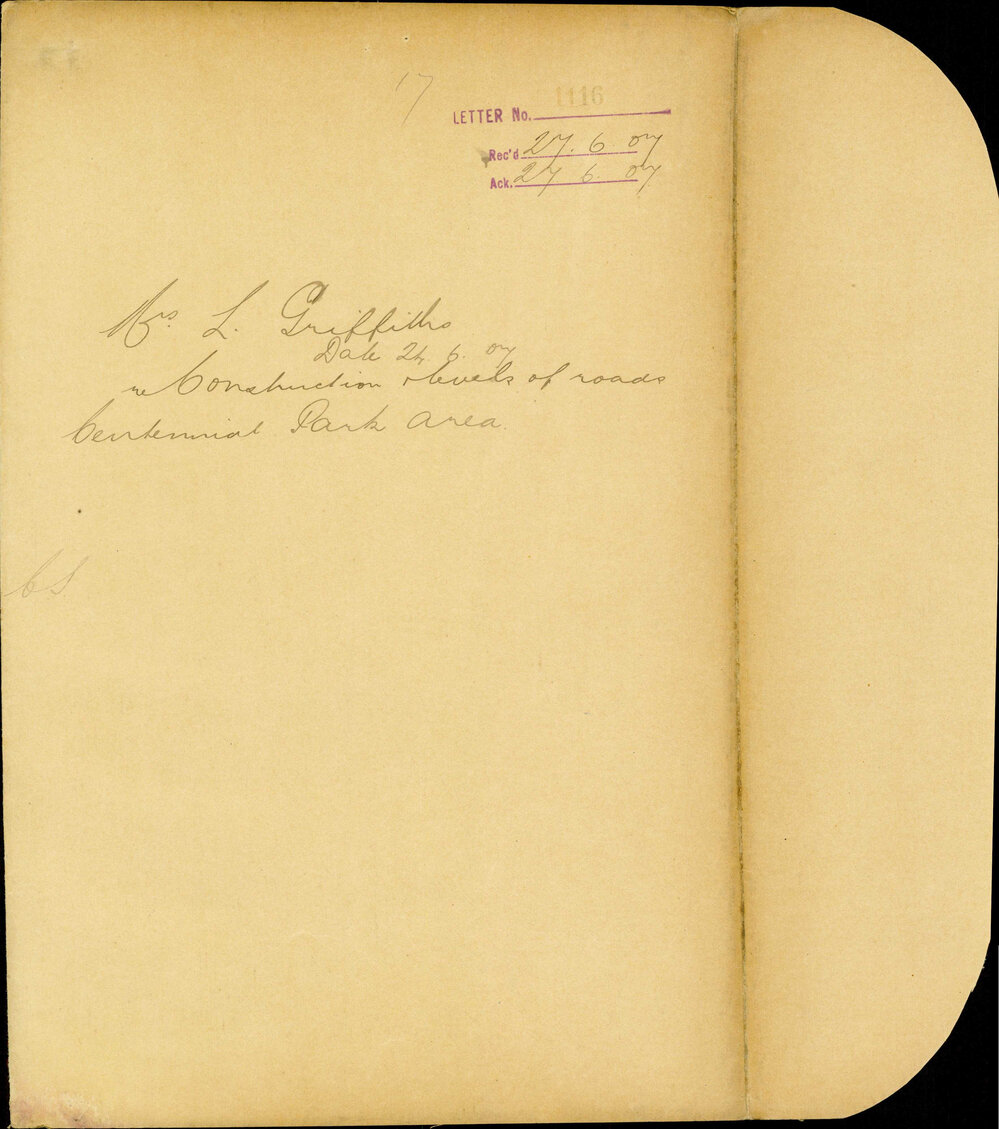 17
LETTER No. 1116
Rec'd 27. 6. 07
Ack. 27 6. 07
Mrs. L. Griffiths
Date 24. 6. 07
re Construction & levels of roads
Centennial Park area.